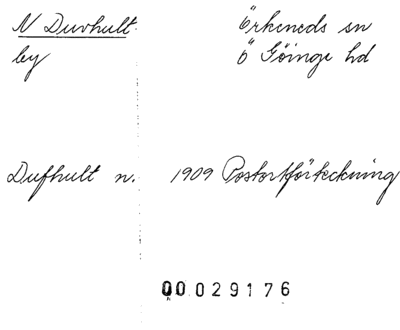 N Duvhult. Örkeneds sn
by Ö Göinge hd
Dufhult n. 1909 Postortförteckning
00 029176